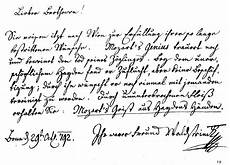 Lieber Beethowen!
Sie reisen itzt nach Wien zur Erfüllung ihrer so lange
bestrittenen Wünsche. Mozart's Genius trauert noch
und beweinet den Tod seines Zöglings. Bey dem uner-
schöpflichem Hayden fand er Zuflucht, aber keine Beschäf-
tigung; durch ihn wünscht er noch einmal mit jemanden
vereinigt zu werden. Durch ununterbrochenen Fleiß
erhalten Sie: Mozart's Geist aus Haydens Händen.
Bonn d 29t Oct. 792. Ihr warer Freund Waldstein